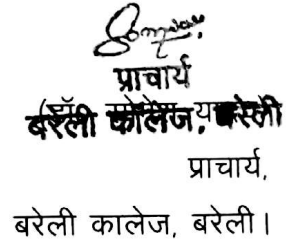 प्राचार्य
बरेली कालेज, बरेली
प्राचार्य,
बरेली कालेज, बरेली।